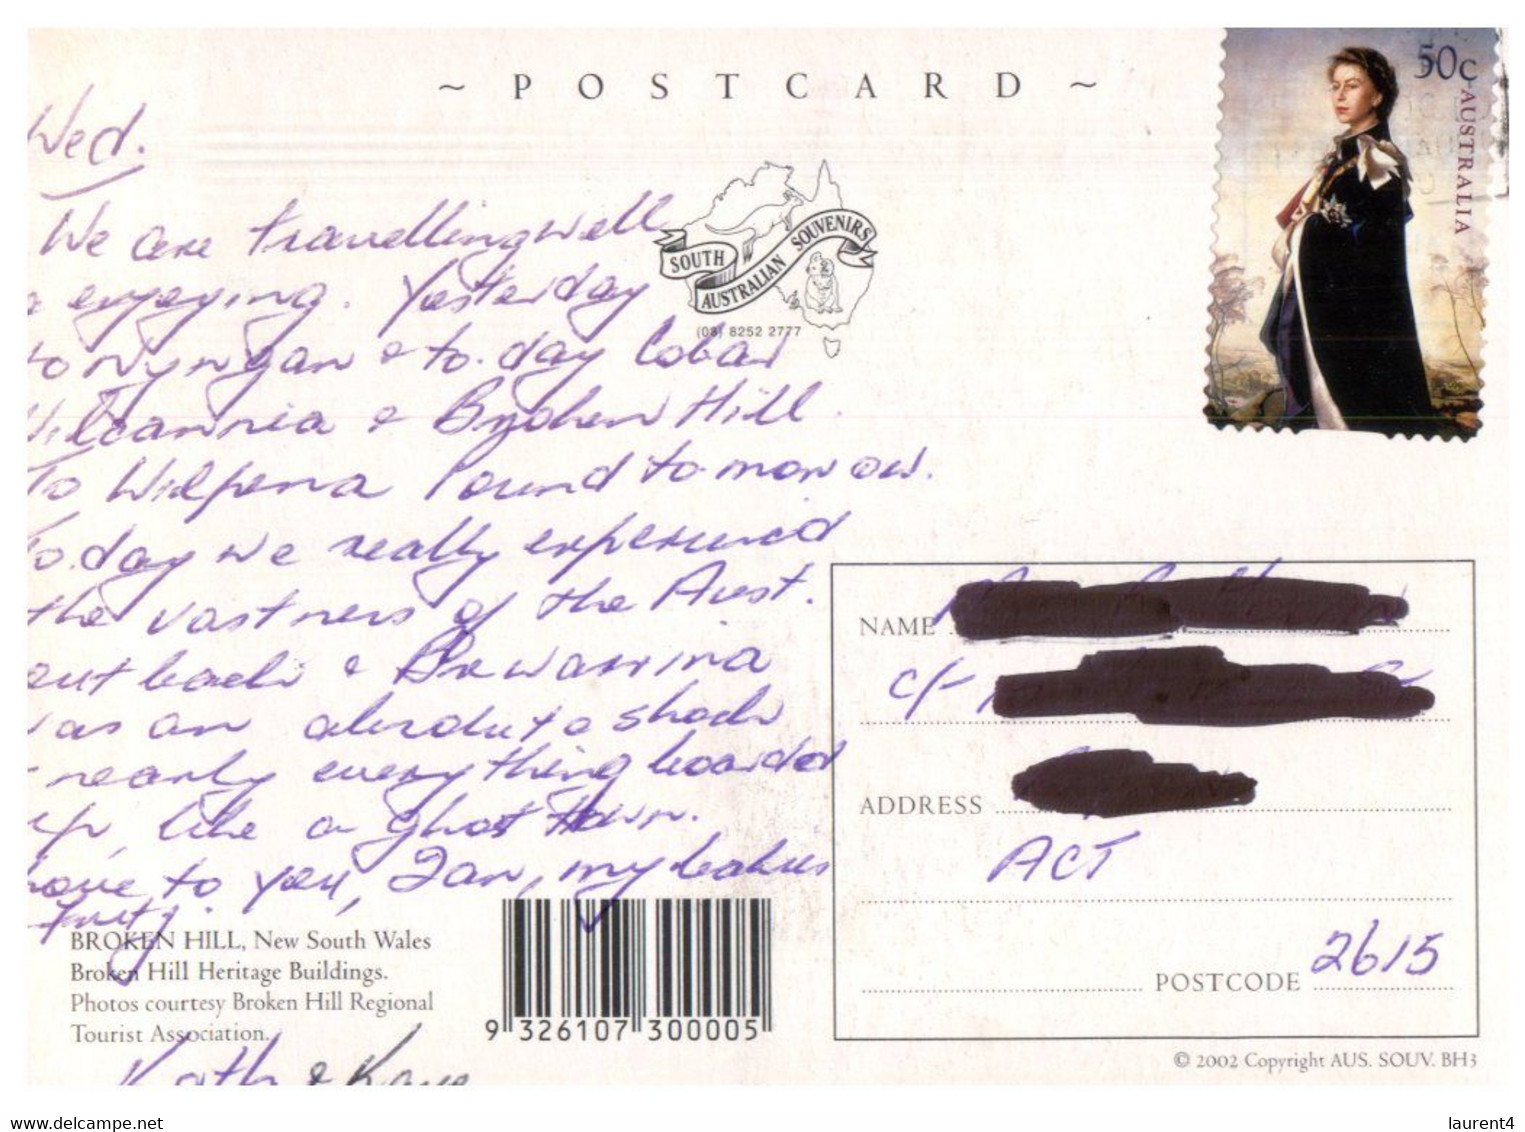 ~ POSTCARD ~
50c
AUSTRALIA
Wed.
We are travelling well
& enjoying. Yesterday
to Nyngan & to-day Cobar
Wilcannia & Broken Hill.
To Wilpena Pound to-morrow.
To-day we really experienced
the vastness of the Aust.
outback & Brewarrina
was an absolute shock
- nearly everything boarded
up, like a ghost town.
Love to you, Ian, my
SOUTH
AUSTRALIAN SOUVENIRS
(08) 8252 2777
BROKEN HILL, New South Wales
Broken Hill Heritage Buildings.
Photos courtesy Broken Hill Regional
Tourist Association.
Kath & Kaye
9 326107 300005
NAME
c/-
ADDRESS
ACT
POSTCODE 2615
© 2002 Copyright AUS. SOUV. BH3
www.delcampe.net
laurent4